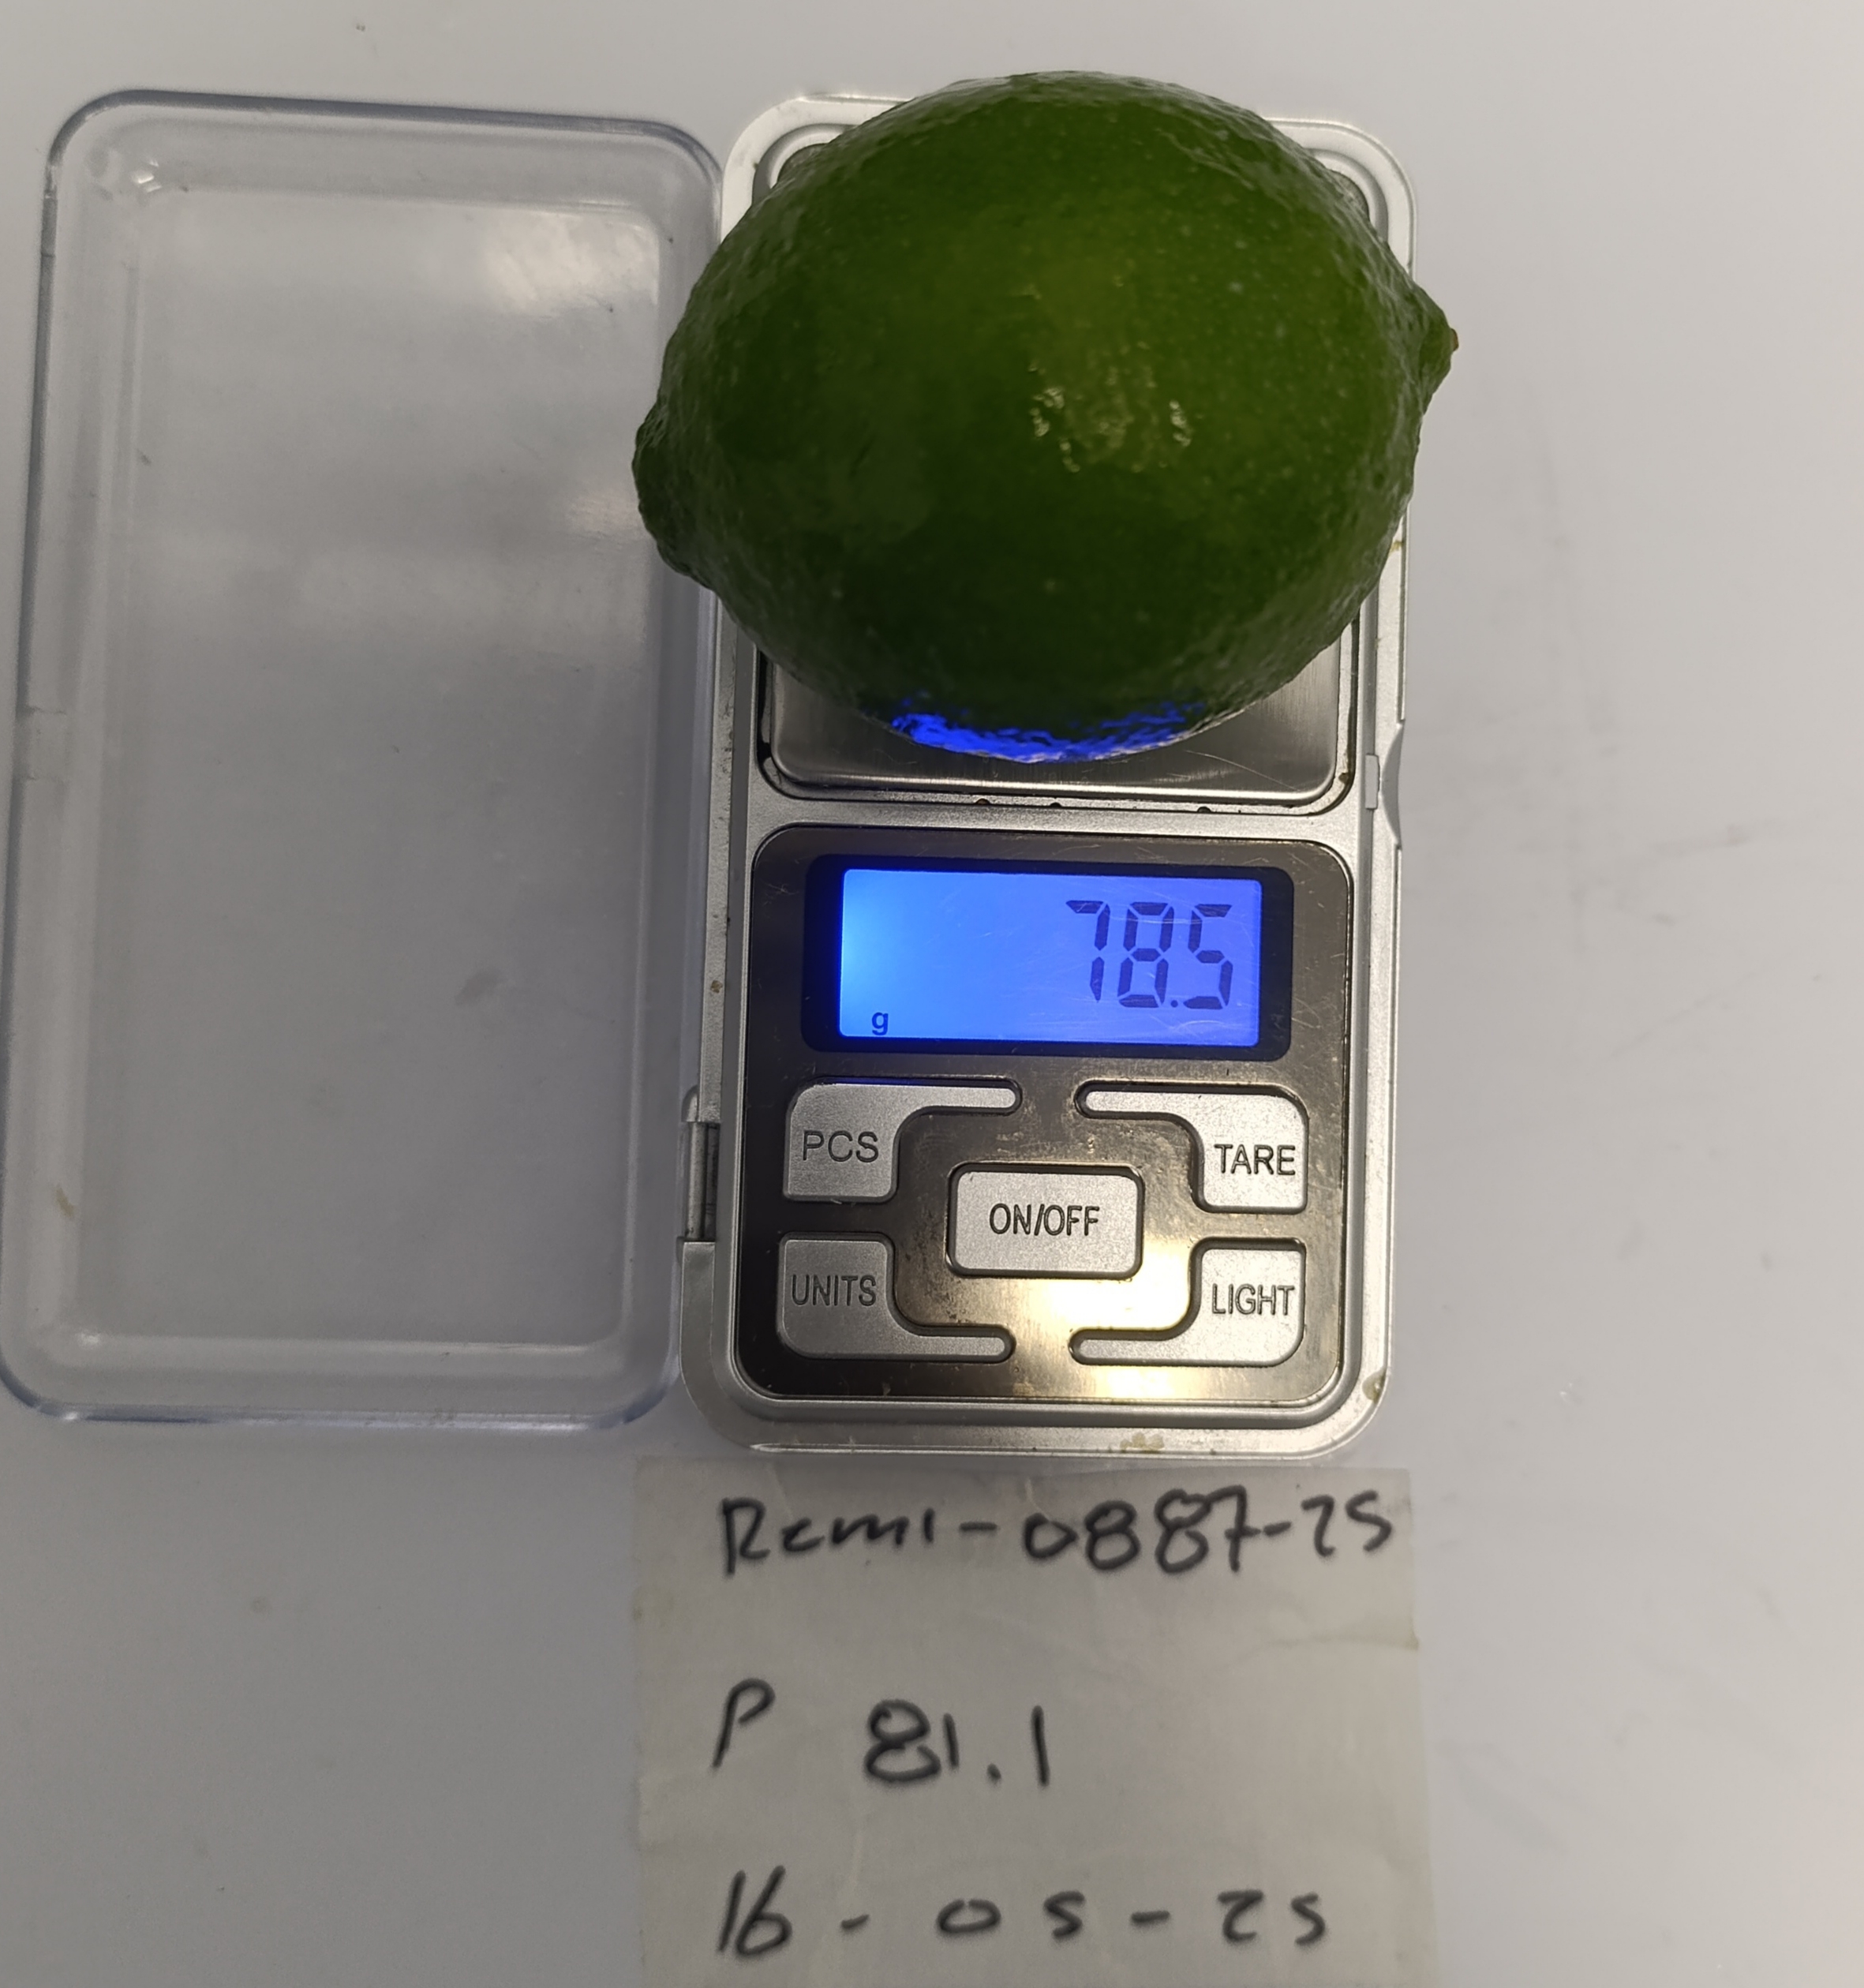 78.5
g
PCS
TARE
ON/OFF
UNITS
LIGHT
Remi-0887-25
P 81.1
16-05-25